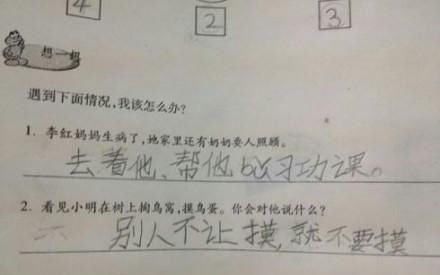 4
2 3
想一想
遇到下面情况,我该怎么办?
1. 李红妈妈生病了,她家里还有奶奶要人照顾。
去看他、帮他bǔ习功课。
2. 看见小明在树上掏鸟窝,摸鸟蛋。你会对他说什么?
别人不让摸,就不要摸